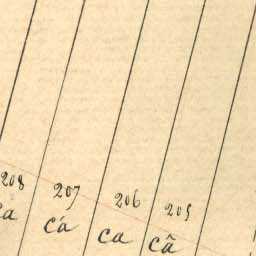 208 207 206 205
cá ca câ